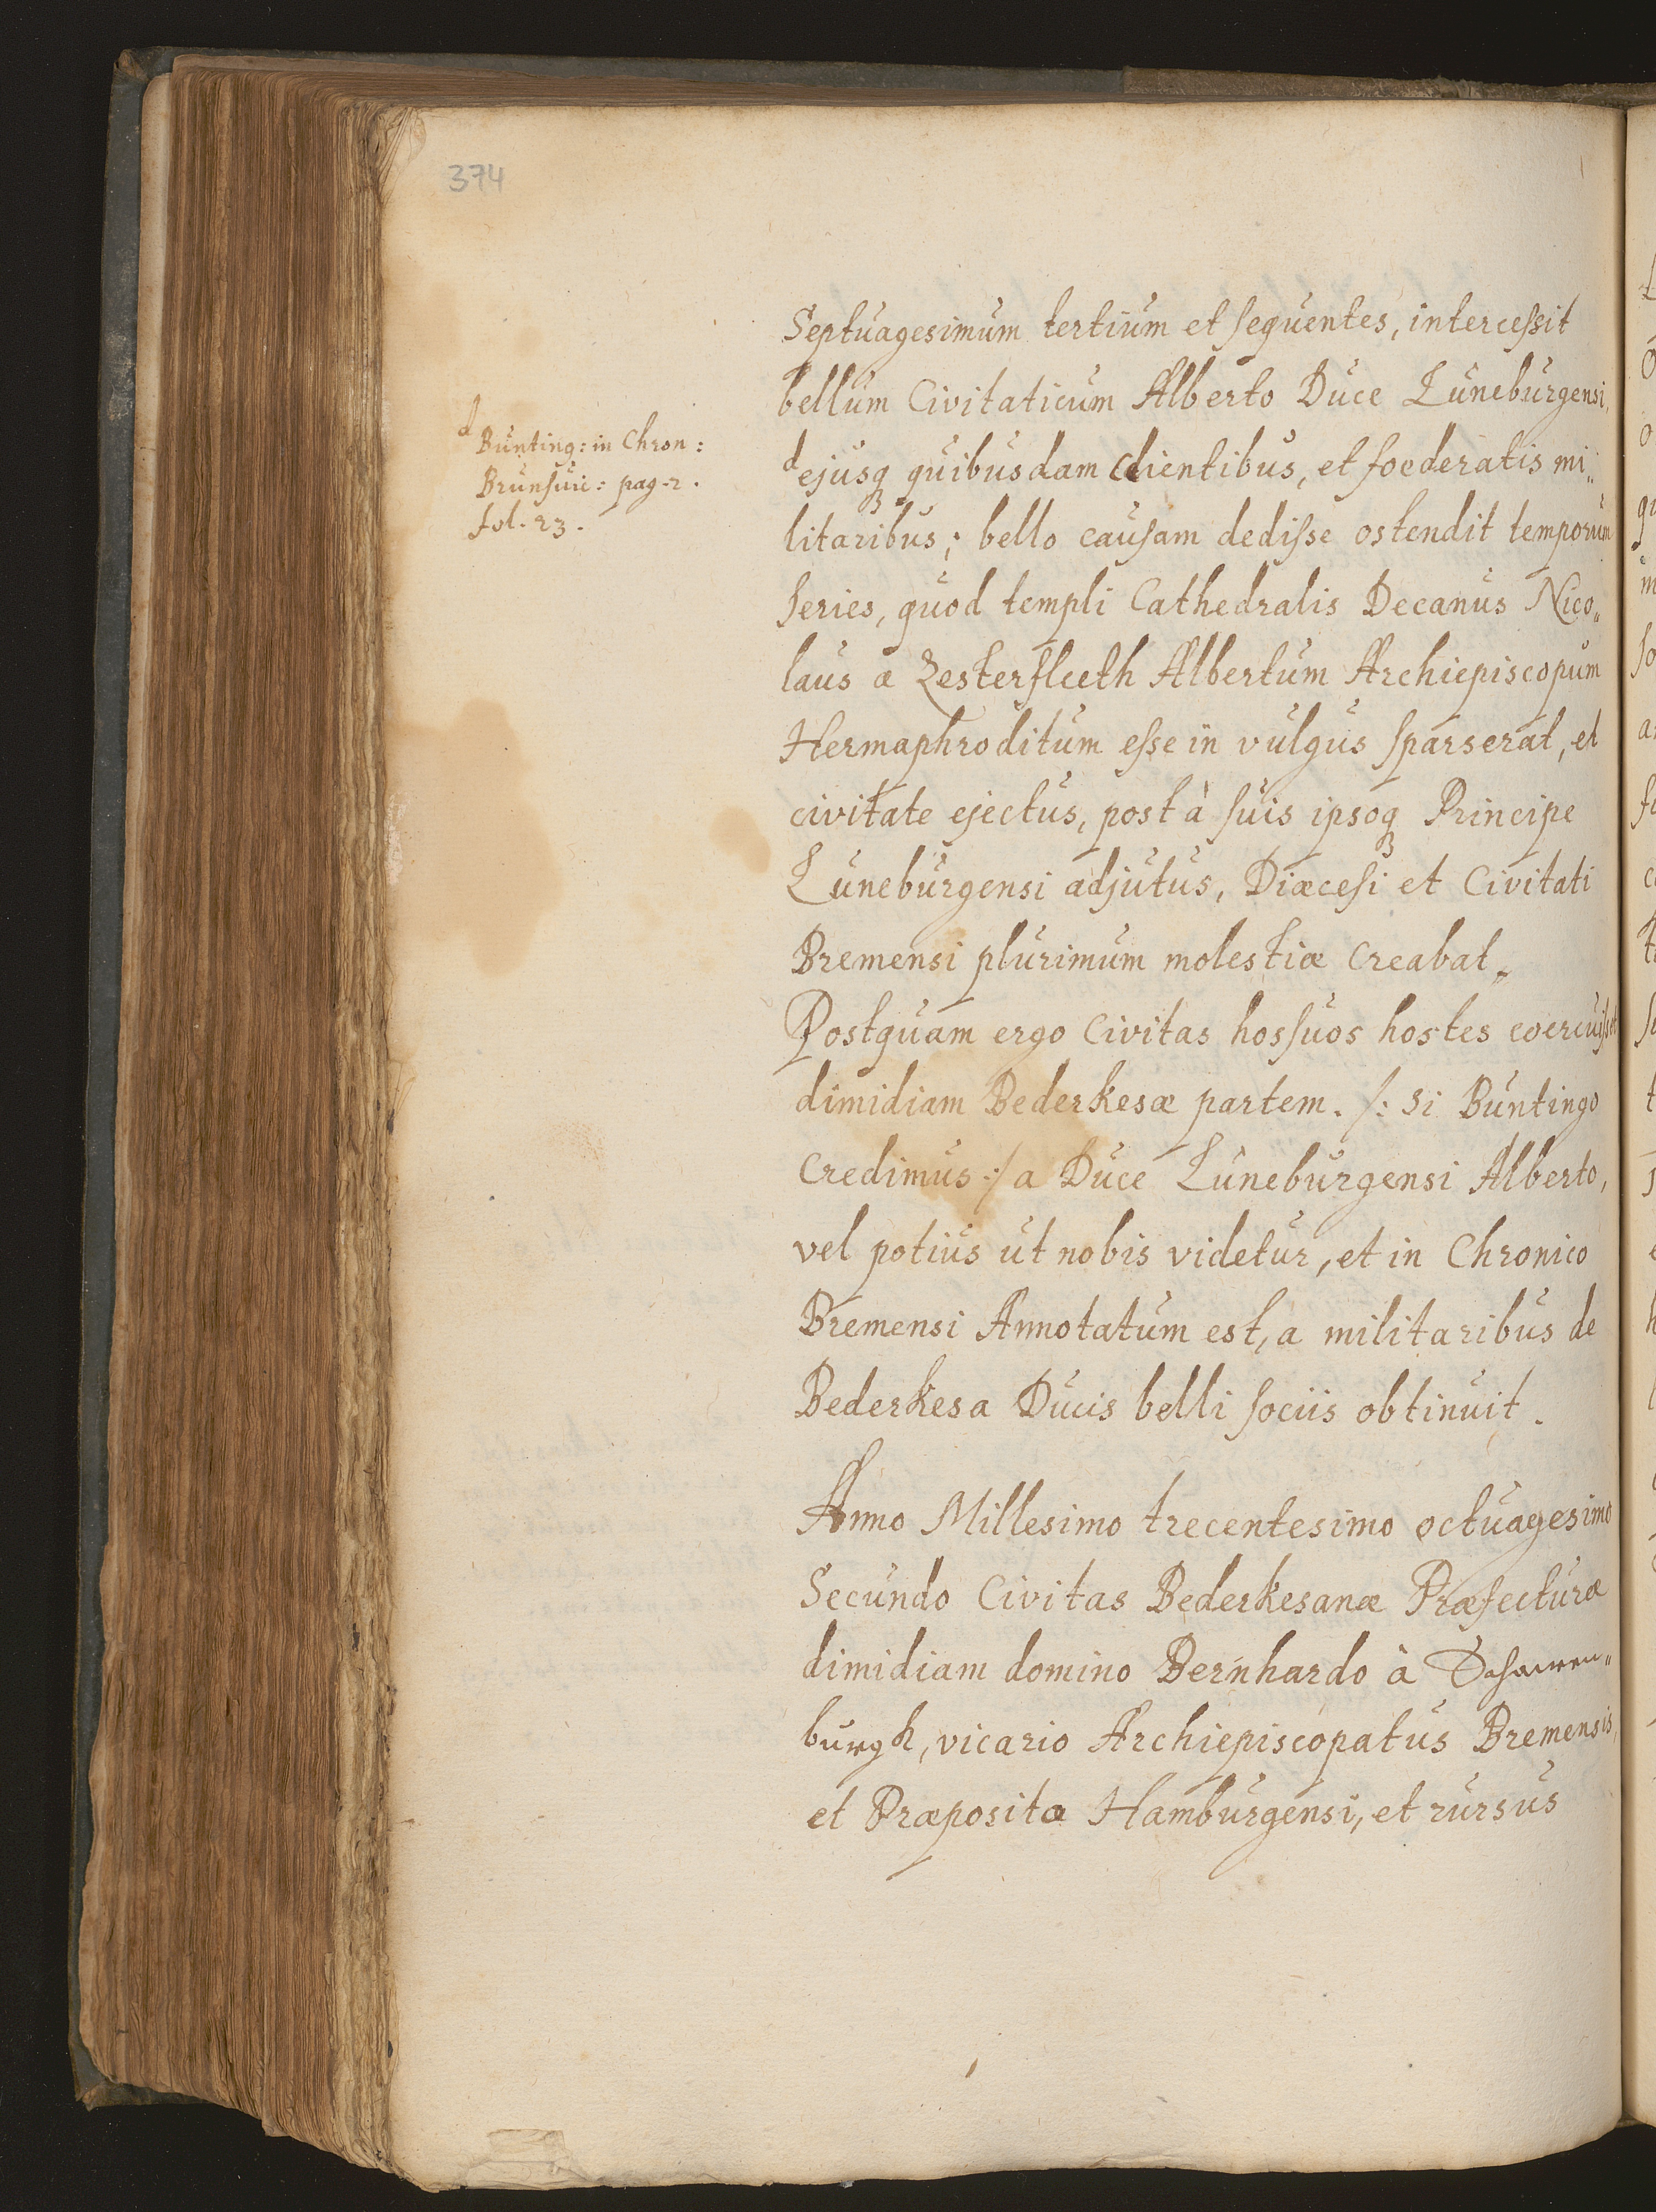 374
Septuagesimum tertium et sequentes, intercessit
bellum Civitaticum Alberto Duce Luneburgensi,
d Bunting: in Chron:
Brunsuic: pag. 2.
fol. 23.
d ejusq quibusdam Clientibus, et foederatis mi„
litaribus; bello causam dedisse ostendit temporum
series, quod templi Cathedralis Decanus Nico„
laus a Zesterfleeth Albertum Archiepiscopum
Hermaphroditum esse in vulgus sparserat, et
civitate ejectus, post à suis ipsoq Principe
Luneburgensi adjutus, Diæcesi et Civitati
Bremensi plurimum molestiæ Creabat„
Postquam ergo Civitas hos suos hostes coercuisset
dimidiam Bederkesæ partem. /: Si Buntingo
Credimus :/ a Duce Luneburgensi Alberto,
vel potius ut nobis videtur, et in Chronico
Bremensi Annotatum est, a militaribus de
Bederkesa Ducis belli sociis obtinuit.
Anno Millesimo trecentesimo octuagesimo
Secundo Civitas Bederkesanæ Præfecturæ
dimidiam domino Bernhardo à Schauen„
burgk, vicario Archiepiscopatus Bremensis,
et Præposito Hamburgensi, et rursus